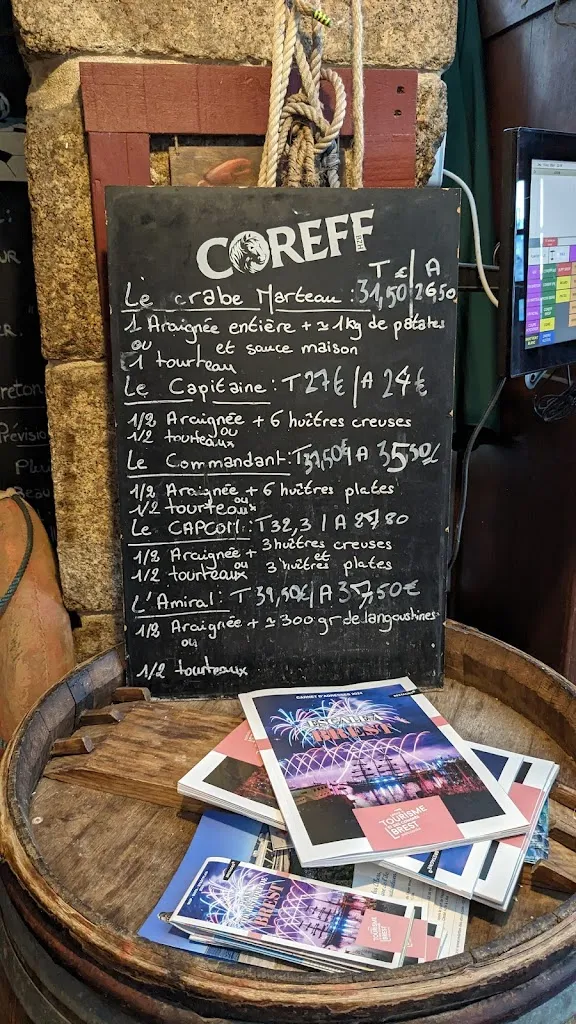 COREFF
BZH
T € | A
Le crabe Marteau : 31,50 | 26,50
1 Araignée entière + ≃ 1kg de patates
ou et sauce maison
1 tourteau
Le Capitaine : T 27€ | A 24€
1/2 Araignée + 6 huîtres creuses
ou
1/2 tourteaux
Le Commandant : T 37,50€ A 35,50€
1/2 Araignée + 6 huîtres plates
ou
1/2 tourteaux
Le CAPCOM : T 32,3 | A 80
1/2 Araignée + 3 huîtres creuses
ou et
1/2 tourteaux 3 huîtres plates
L'Amiral : T 39,50€ | A 37,50€
1/2 Araignée + ≃ 300 gr de langoustines
ou
1/2 tourteaux
UR
ER.
reton
Prévision
Plu
Beau
CARNET D'ADRESSES 2024
ESCALE À
BREST
TOURISME
BREST
BREST
TOURISME
BREST